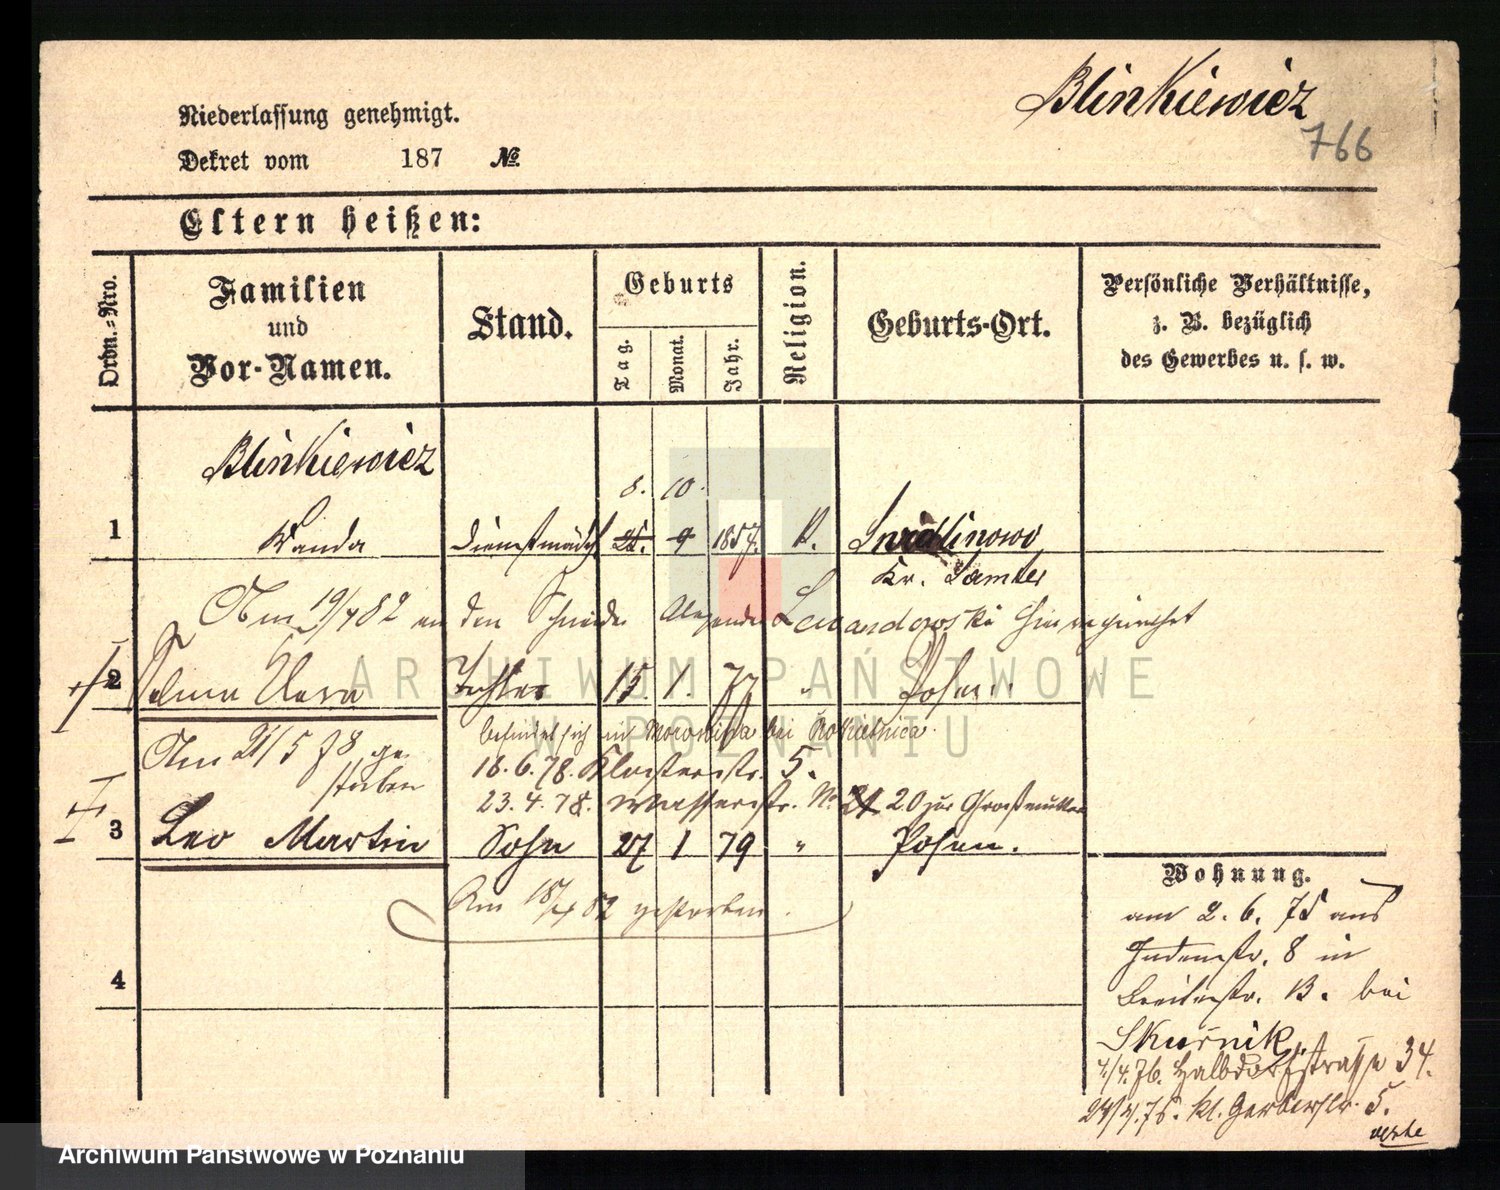 Blinkiewicz
766
Niederlassung genehmigt.
Dekret vom 187 No.
Eltern heißen:
Ordn.-Nro.
Familien
und
Vor-Namen.
Stand.
Geburts
Tag.
Monat.
Jahr.
Religion.
Geburts-Ort.
Persönliche Verhältnisse,
z. B. bezüglich
des Gewerbes u. s. w.
Blinkiewicz
8. 10.
1 Wanda Dienstmädch 25. 9 1857. K.
Kr. Samter
Am 19/4 82 an den Schneider Lewandowski
2 Tochter 15. 1. 77 " Posen.
Am 21/5 78 ge
storben
befindet sich in bei Rokietnica.
18.6.78. Klosterstr. 5.
23.4.78. Wasserstr. No 21 20 zur Großmutter
3 Leo Martin Sohn 27 1 79 " Posen.
Am 18/4 82 gestorben.
4
Wohnung.
am 2. 6. 75 aus
Judenstr. 8 in
Breitestr. 13. bei
Skurnik
1/4. 76. Halbdorfstrasse 34.
kl. Gerberstr. 5.
ARCHIWUM PAŃSTWOWE
W POZNANIU
Archiwum Państwowe w Poznaniu